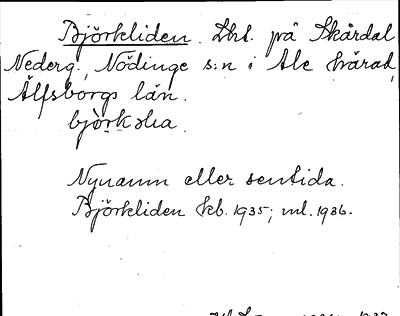 Björkliden. Lht. på Skårdal
Nederg., Nödinge s:n i Ale härad,
Älfsborgs län.
björk
Nynamn eller sentida.
Björkliden kb. 1935; ml. 1936.